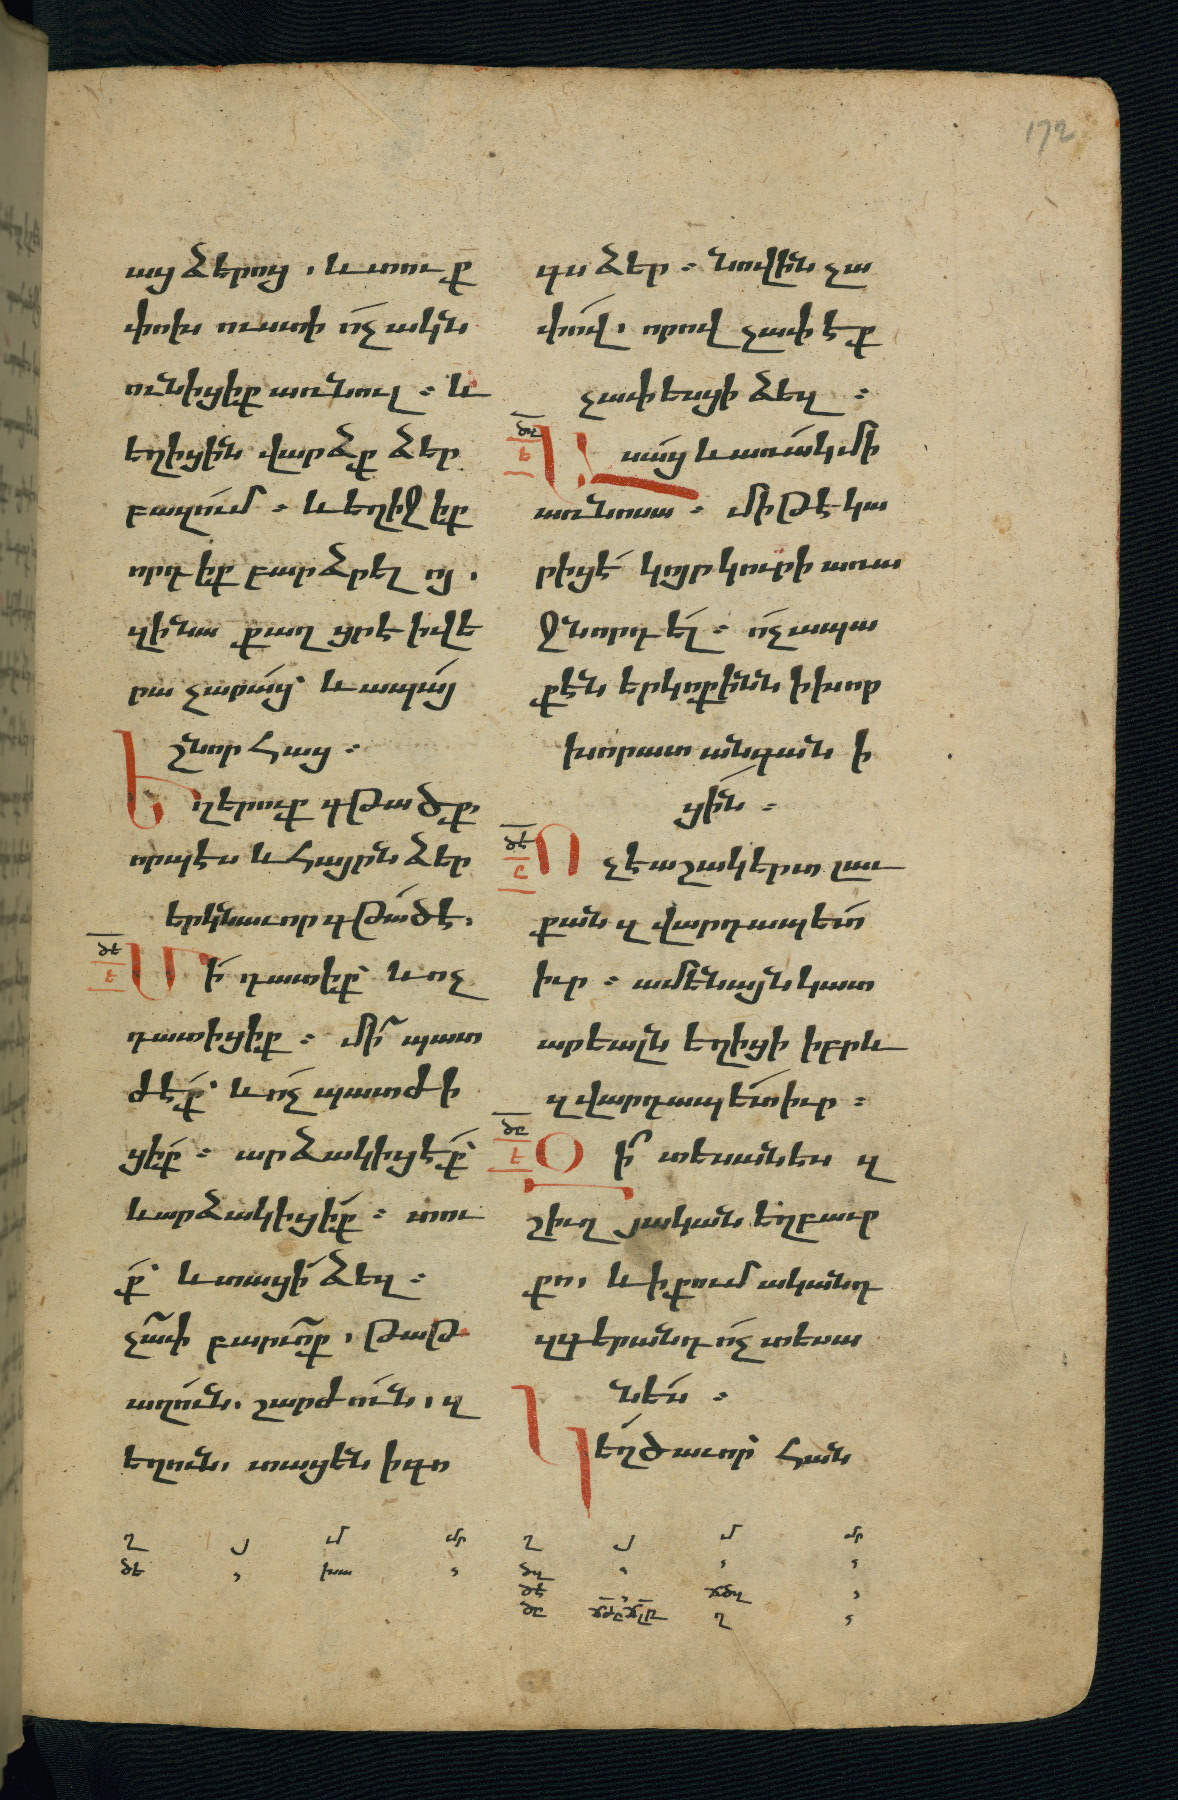 172
այ ձերոց, և տուք
փոխ ուստի ոչ ակն
ունիցիք առնուլ ։ և
եղիցին վարձք ձեր
բազում ։ և եղիջիք
որդիք բարձրելոյ,
զինա քաղցրէ իվե
րա չարաց՝ և ապաշ
նորհաց ։
Եղերուք գթածք,
որպէս և հայրն ձեր
երկնաւոր գթած է.
ծե
Մի դատիք՝ և ոչ
դատիցիք ։ մի՛ պատ
ժէք՝ և ոչ պատժի
ցիք ։ արձակիցէք՝
և արձակիցիք ։ տու
ք՝ և տացի ձեզ ։
չափ բարւոք, թաթ
աղուն, շարժուն, զ
եղուն, տացեն ի գո
գս ձեր ։ նովին չա
փով, որով չափէք
չափեսցի ձեզ ։
ծզ
Ասաց և առակ մի
առնոսա ։ միթէ կա
րիցէ կոյր կուրի առա
ջնորդել ։ ոչ ապա
քէն երկոքինն ի խոր
խորատ անգան ի
ցին ։
ծէ
Ոչ է աշակերտ լաւ
քան զվարդապետ
իւր ։ ամենայն կատ
արեալն եղիցի իբրև
զվարդապետ իւր ։
ծը
Զի՞ տեսանես զ
շիւղ յական եղբաւր
քո, և ի քում ականդ
զգերանդ ոչ տեսա
նես ։
Կեղծաւոր՝ հան
ղ յ մ մր
ծե խա
ղ յ մ մր
ծզ
ծէ
ծը ղ